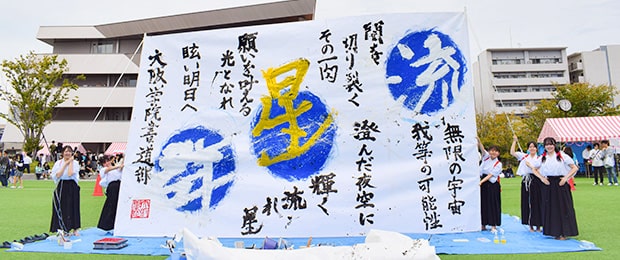 流
無限の宇宙
我等の可能性
闇を
切り裂く
その一閃
澄んだ夜空に
輝く
流れ星
星
願いを叶える
光となれ
眩い明日へ
群
大阪学院書道部